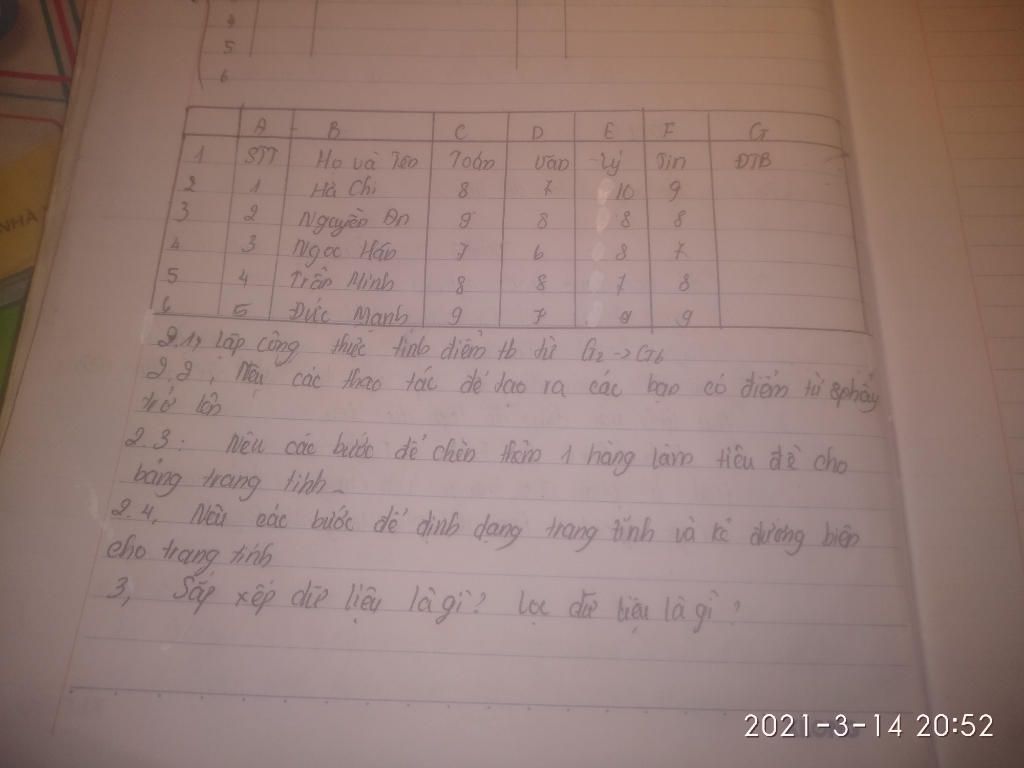 4
5
6
A B C D E F G
1 STT Họ và Tên Toán Văn Lý Tin ĐTB
2 1 Hà Chi 8 7 10 9
3 2 Nguyễn An 9 8 8 8
4 3 Ngọc Hân 7 6 8 7
5 4 Trần Minh 8 8 7 8
6 5 Đức Mạnh 9 7 9 9
2.1, lập công thức tính điểm tb từ G2 → G6
2.2, Nêu các thao tác để tạo ra các bạn có điểm từ 8 phẩy
trở lên
2.3: Nêu các bước để chèn thêm 1 hàng làm tiêu đề cho
bảng trang tính
2.4, Nêu các bước để định dạng trang tính và kẻ đường biên
cho trang tính
3, Sắp xếp dữ liệu là gì? lọc dữ liệu là gì?
2021-3-14 20:52